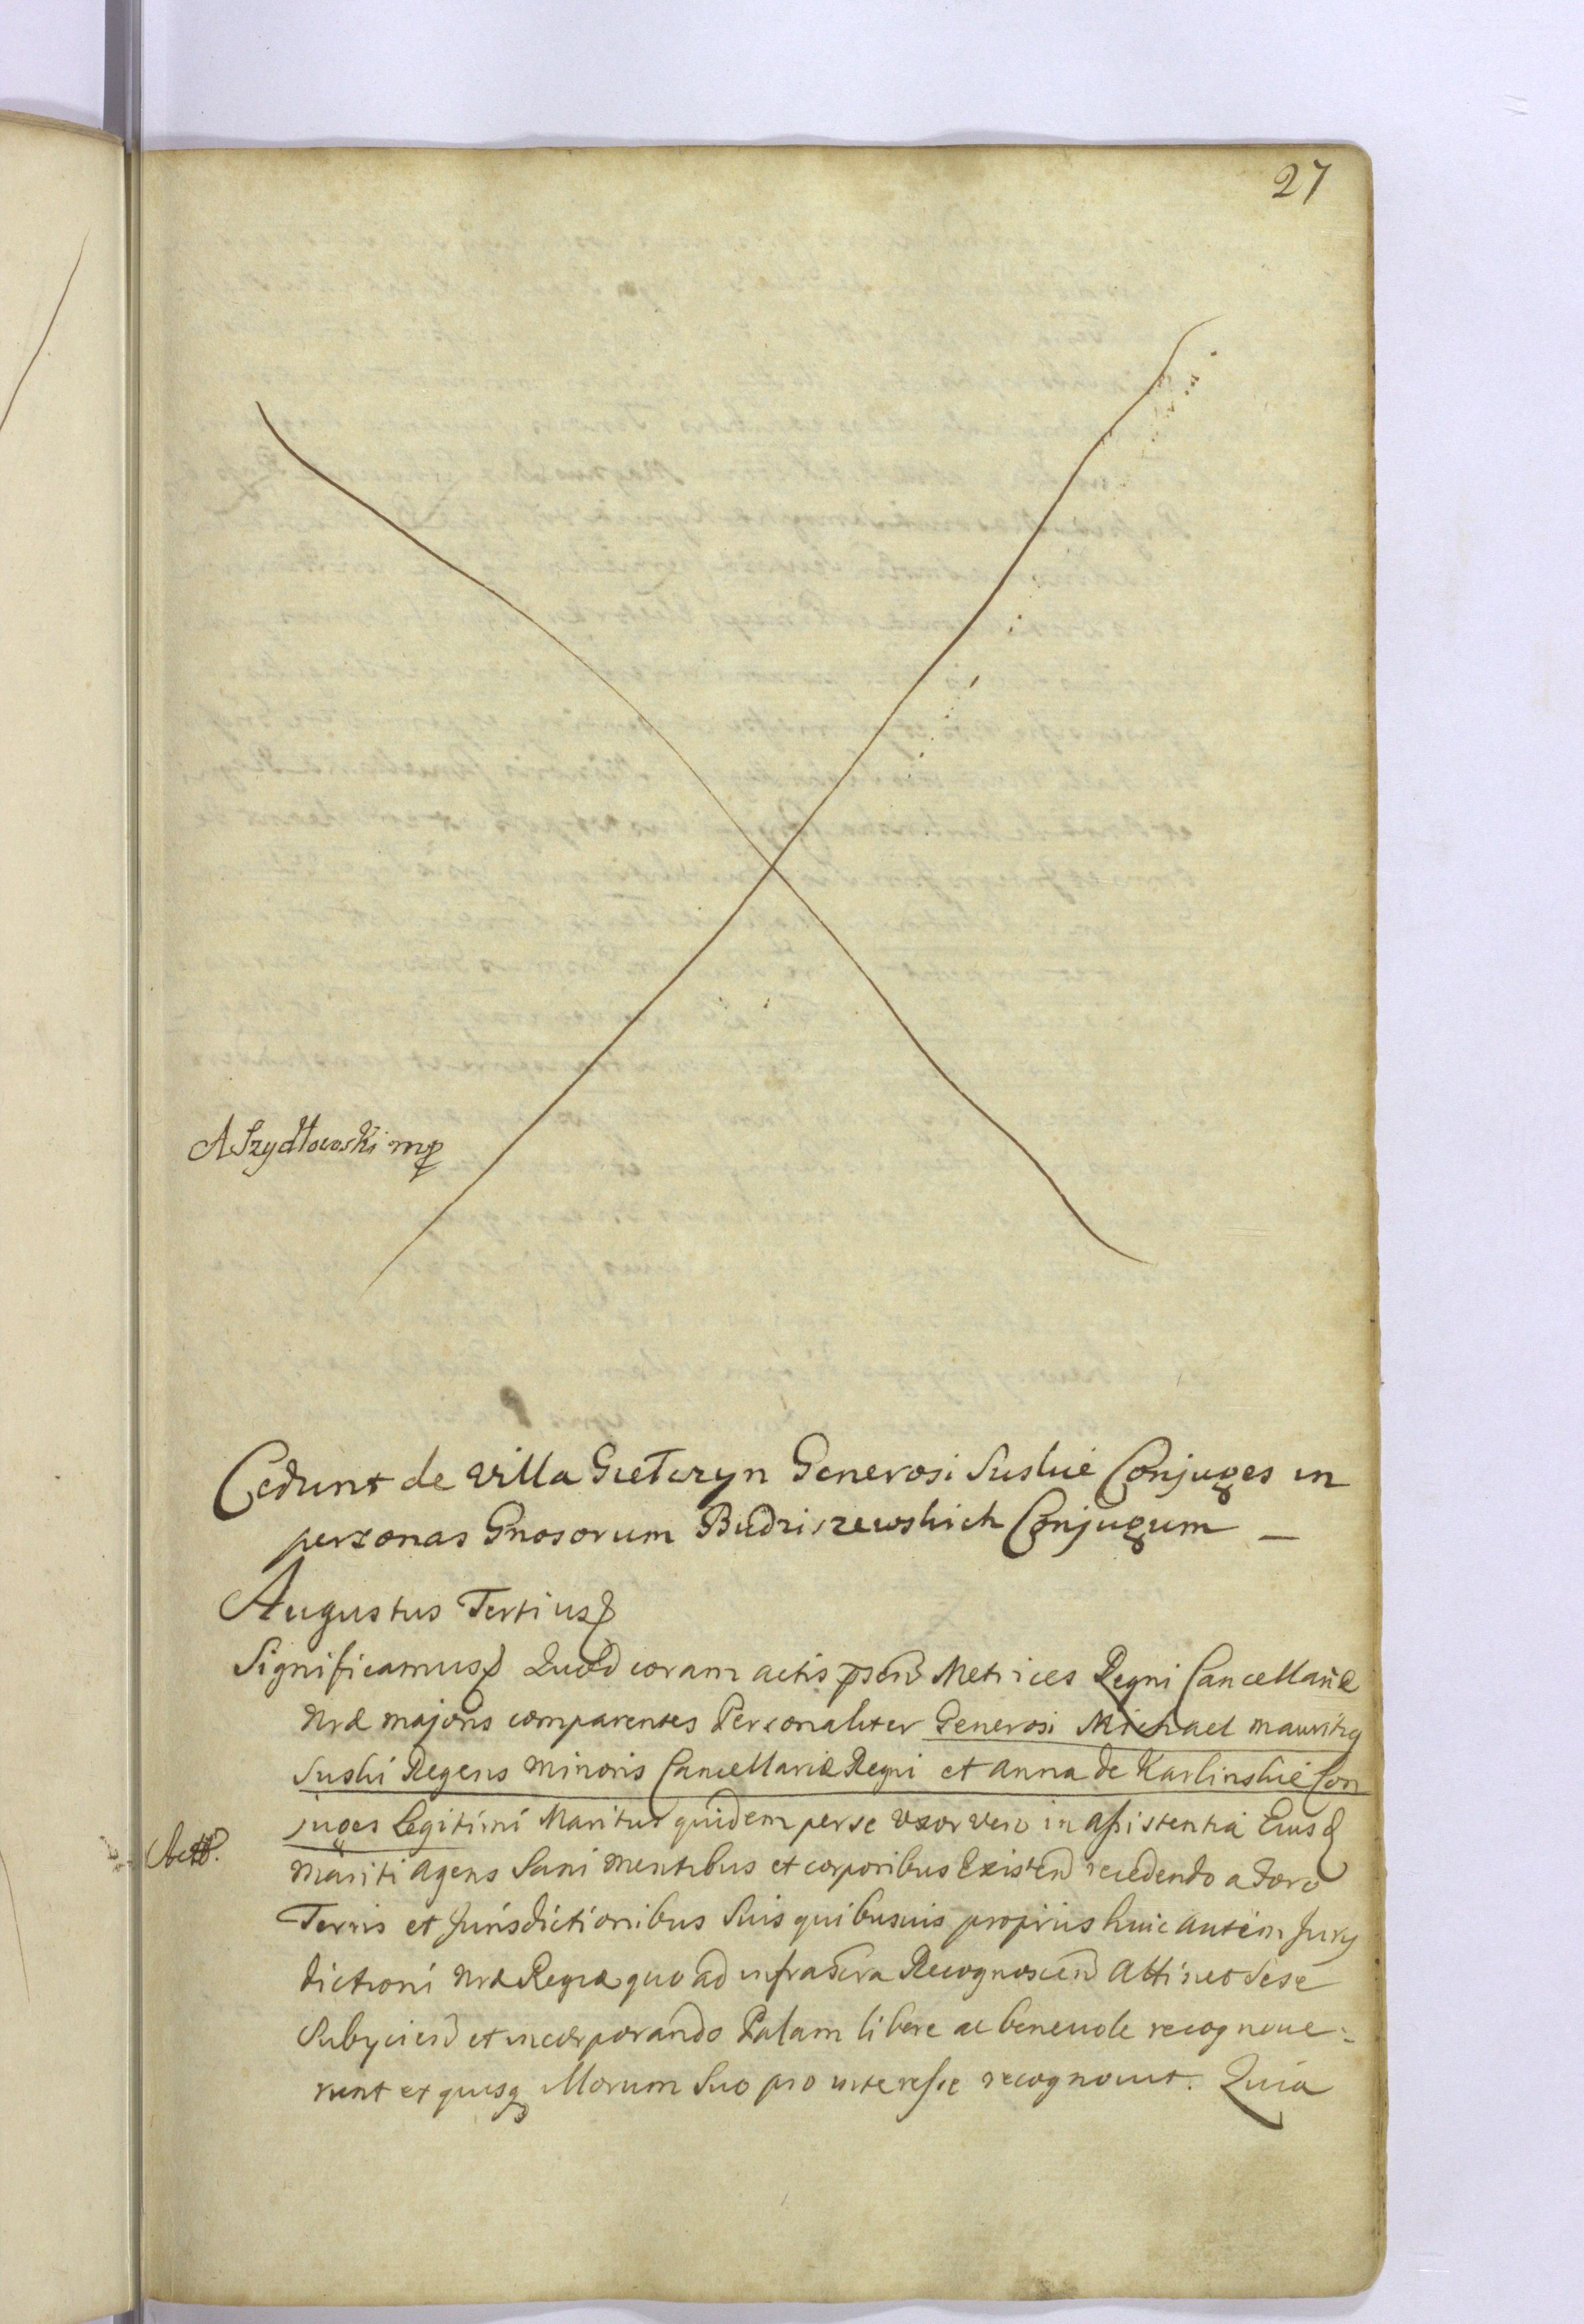 27
ASzydłowski mp
Cedunt de Villa Gietczyn Generosi Suskie Conjuges in
personas Gnosorum Budziszewskich Conjugum —
Augustus Tertius
Significamus Quod coram actis psen Metrices Regni Cancellariæ
Nræ majoris comparentes Personaliter Generosi Michael Mauritij
Suski Regens Minoris Cancellariæ Regni et Anna de Karlinskie Con
juges Legitimi Maritus quidem per se Uxor vero in assistentia Eius
Mariti Agens Sani Mentibus et corporibus Existen recedendo a Foro
Terris et Jurisdictionibus Suis quibusuis proprius huic autem Jurys
dictioni Nræ Regiæ quo ad infrascra Recognoscen Attinet Sese
Subijcien et incorporando Palam libere ac beneuole recognoue=
runt et quisq Morum Suo pro interesse recognouit. Quia